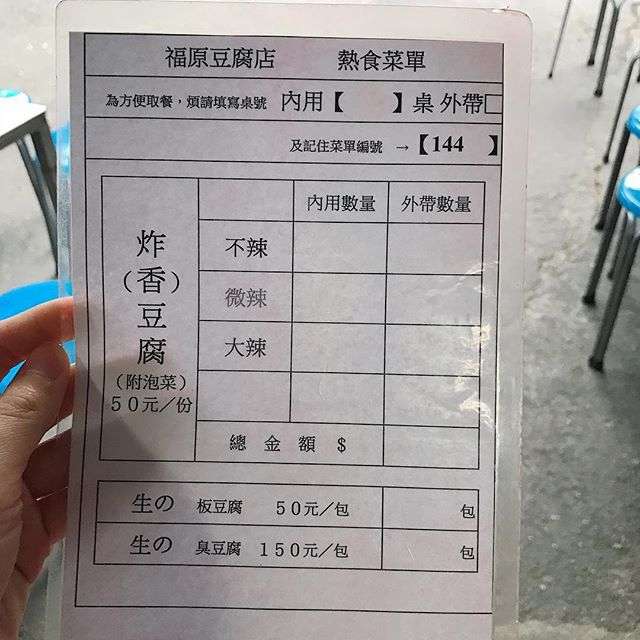 福原豆腐店 熱食菜單
為方便取餐，煩請填寫桌號 內用【 】桌 外帶□
及記住菜單編號 →【144 】
內用數量 外帶數量
炸（香）豆腐
（附泡菜）
５０元／份
不辣
微辣
大辣
總 金 額 $
生の 板豆腐 ５０元／包 包
生の 臭豆腐 １５０元／包 包